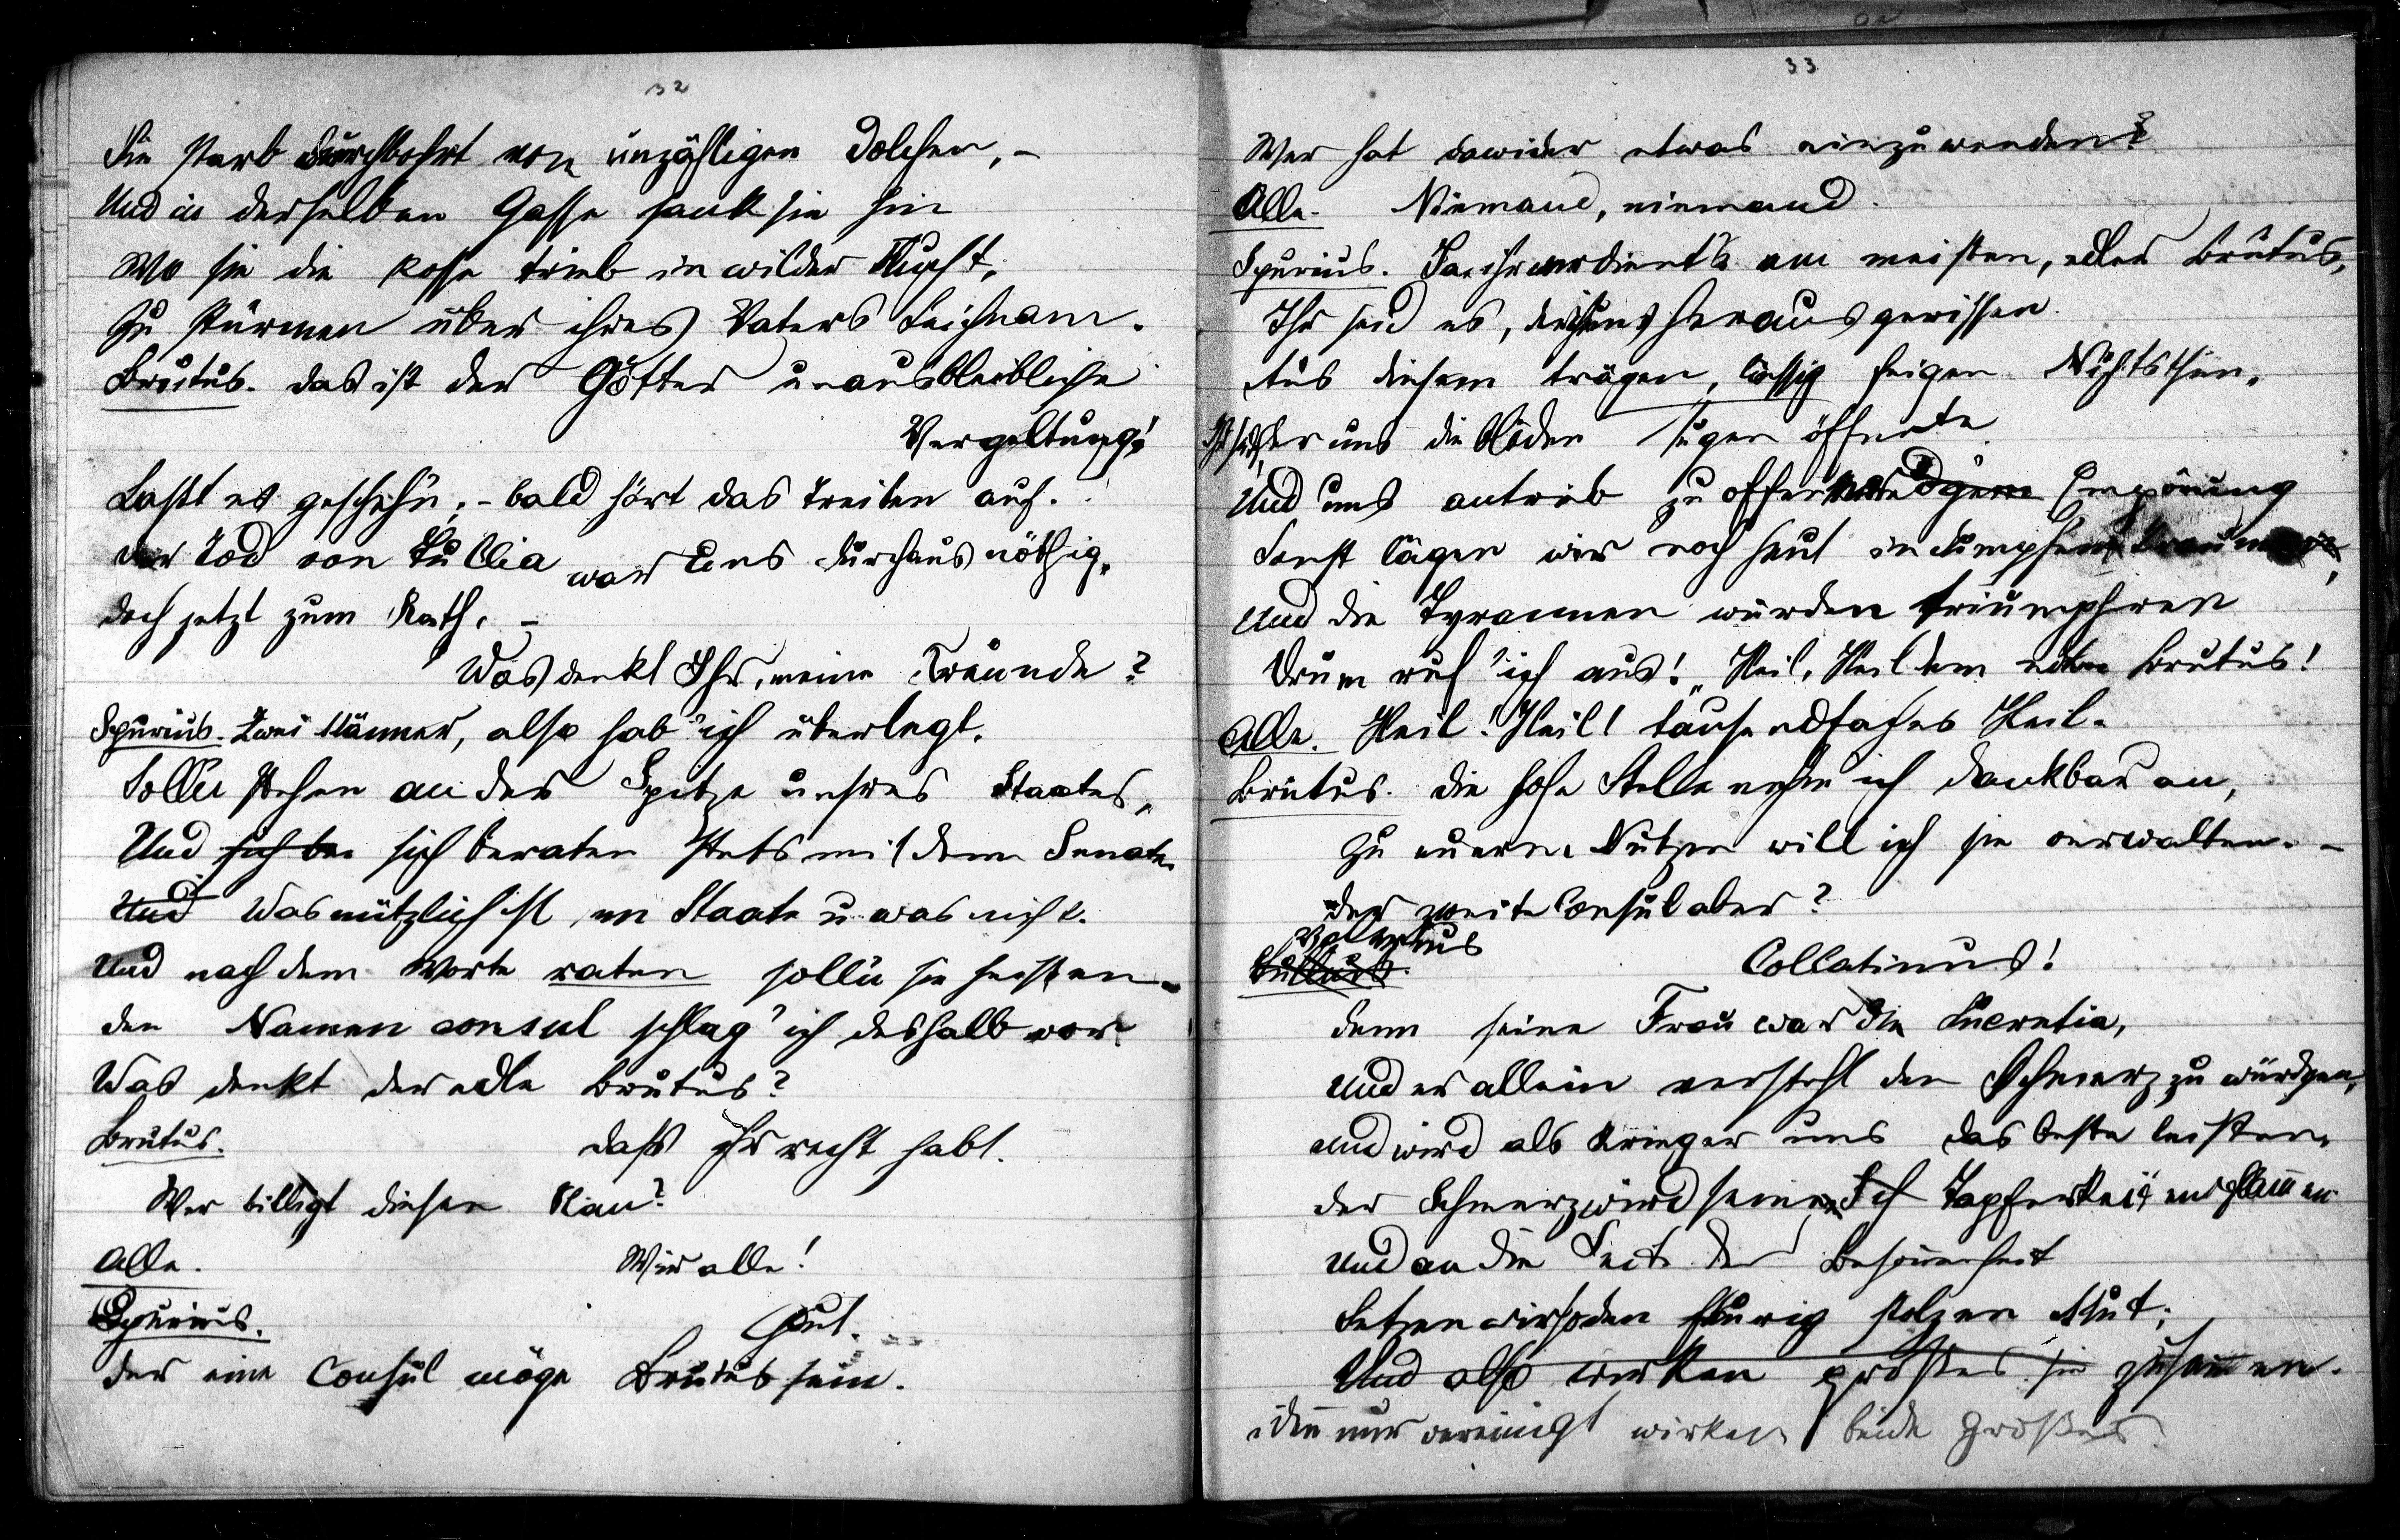 32
Sie starb durchbohrt von unzähligen Dolchen, –
Und in derselben Gasse sank sie hin
Wo sie die Rosse trieb in wilder Flucht,
Zu stürmen über ihres Vaters Leichnam.
Brutus. Das ist der Götter unausbleibliche
Vergeltung!
Laßt es geschehn; – bald hört das Treiben auf.
Der Tod von Tullia war uns durchaus nöthig.
Doch jetzt zum Rath. –
Was denkt Ihr, meine Freunde?
Spurius. Zwei Männer, also hab' ich überlegt,
Solln stehen an der Spitze unsres Staates,
Und sich be sich beraten stets mit dem Senate
Und Was nützlich ist im Staate u was nicht.
Und nach dem Worte raten solln sie heißen.
Den Namen consul schlag' ich deshalb vor.
Was denkt der edle Brutus?
Brutus. Daß ihr recht habt.
Wer billigt diesen Plan?
Alle. Wir alle!
Spurius. Gut.
Der eine Consul möge Brutus sein.
33
Wer hat dawider etwas einzuwenden?
Alle. Niemand, niemand.
Spurius. Ja, ihr verdient's am meisten, edler Brutus,
Ihr seid es, der uns herausgerissen
Aus diesem trägen, lässig feigen Nichtsthun,
der uns die blöden Augen öffnete
Und uns antrieb zu Empörung
Sonst lägen wir noch heut in dumpfem
Und die Tyrannen würden triumphiren
Drum ruf' ich aus! „Heil, Heil dem edlen Brutus!
Alle. Heil! Heil! tausendfaches Heil.
Brutus. Die hohe Stelle nehm ich dankbar an,
Zu euerm Nutzen will ich sie verwalten. –
Der zweite Consul aber?
Valerius
Collatinus!
Denn seine Frau war die Lucretia,
Und er allein versteht den Schmerz zu würdgen,
Und wird als Krieger uns das beste leisten.
Der Schmerz wird seine Tapferkeit entflammen
Und an die Seite der Besonnenheit
Setzen wir so den feurig stolzen Mut;
Und also wirken großes sie zusammen.
Denn nur vereinigt wirken beide Großes